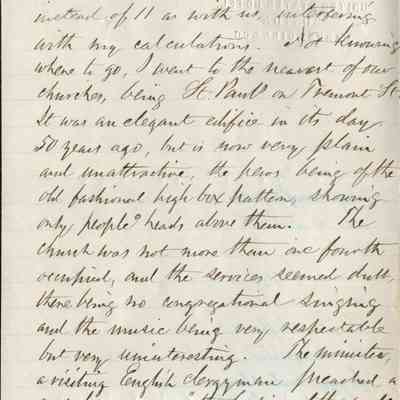 instead of 11 as with us, interfering
with my calculations. Not knowing
where to go, I went to the nearest of our
churches, being St. Paul's on Tremont St.
It was an elegant edifice in its day
50 years ago, but is now very plain
and unattractive, the pews being of the
old fashioned high box pattern, showing
only people's heads above them. The
church was not more than one fourth
occupied, and the services seemed dull,
there being no congregational singing
and the music being very respectable
but very uninteresting. The minister,
a visiting English clergyman preached a